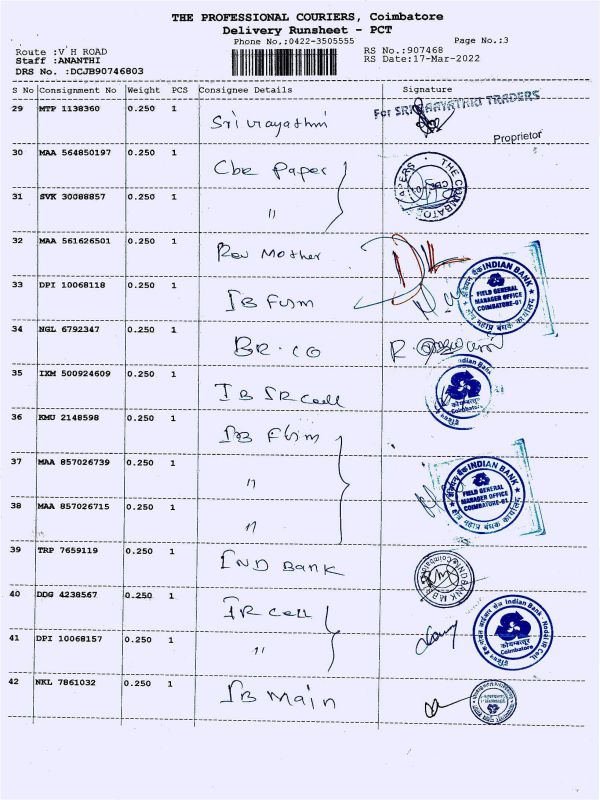 THE PROFESSIONAL COURIERS, Coimbatore
Delivery Runsheet - PCT
Phone No.:0422-3505555 Page No.:3
Route :V H ROAD RS No.:907468
Staff :ANANTHI RS Date:17-Mar-2022
DRS No. :DCJB90746803
S No Consignment No Weight PCS Consignee Details Signature
29 MTP 1138360 0.250 1
TRADERS
Proprietor
30 MAA 564850197 0.250 1 Cbe Paper
THE COIMBATORE
31 SVK 30088857 0.250 1 "
32 MAA 561626501 0.250 1 Rev Mother
33 DPI 10068118 0.250 1 IB Fgm
INDIAN BANK
FIELD GENERAL
MANAGER OFFICE
COIMBATORE-01
34 NGL 6792347 0.250 1 BR. CO
35 IXM 500924609 0.250 1 IB SR Cell
Indian Bank
कोयम्बत्तूर
Coimbatore
36 KMU 2148598 0.250 1
37 MAA 857026739 0.250 1 "
INDIAN BANK
FIELD GENERAL
MANAGER OFFICE
COIMBATORE-01
38 MAA 857026715 0.250 1 "
39 TRP 7659119 0.250 1 IND BANK
40 DDG 4238567 0.250 1 IR Cell
Indian Bank - Nodal IR Cell
कोयम्बत्तूर
Coimbatore
41 DPI 10068157 0.250 1 "
42 NKL 7861032 0.250 1 IB Main